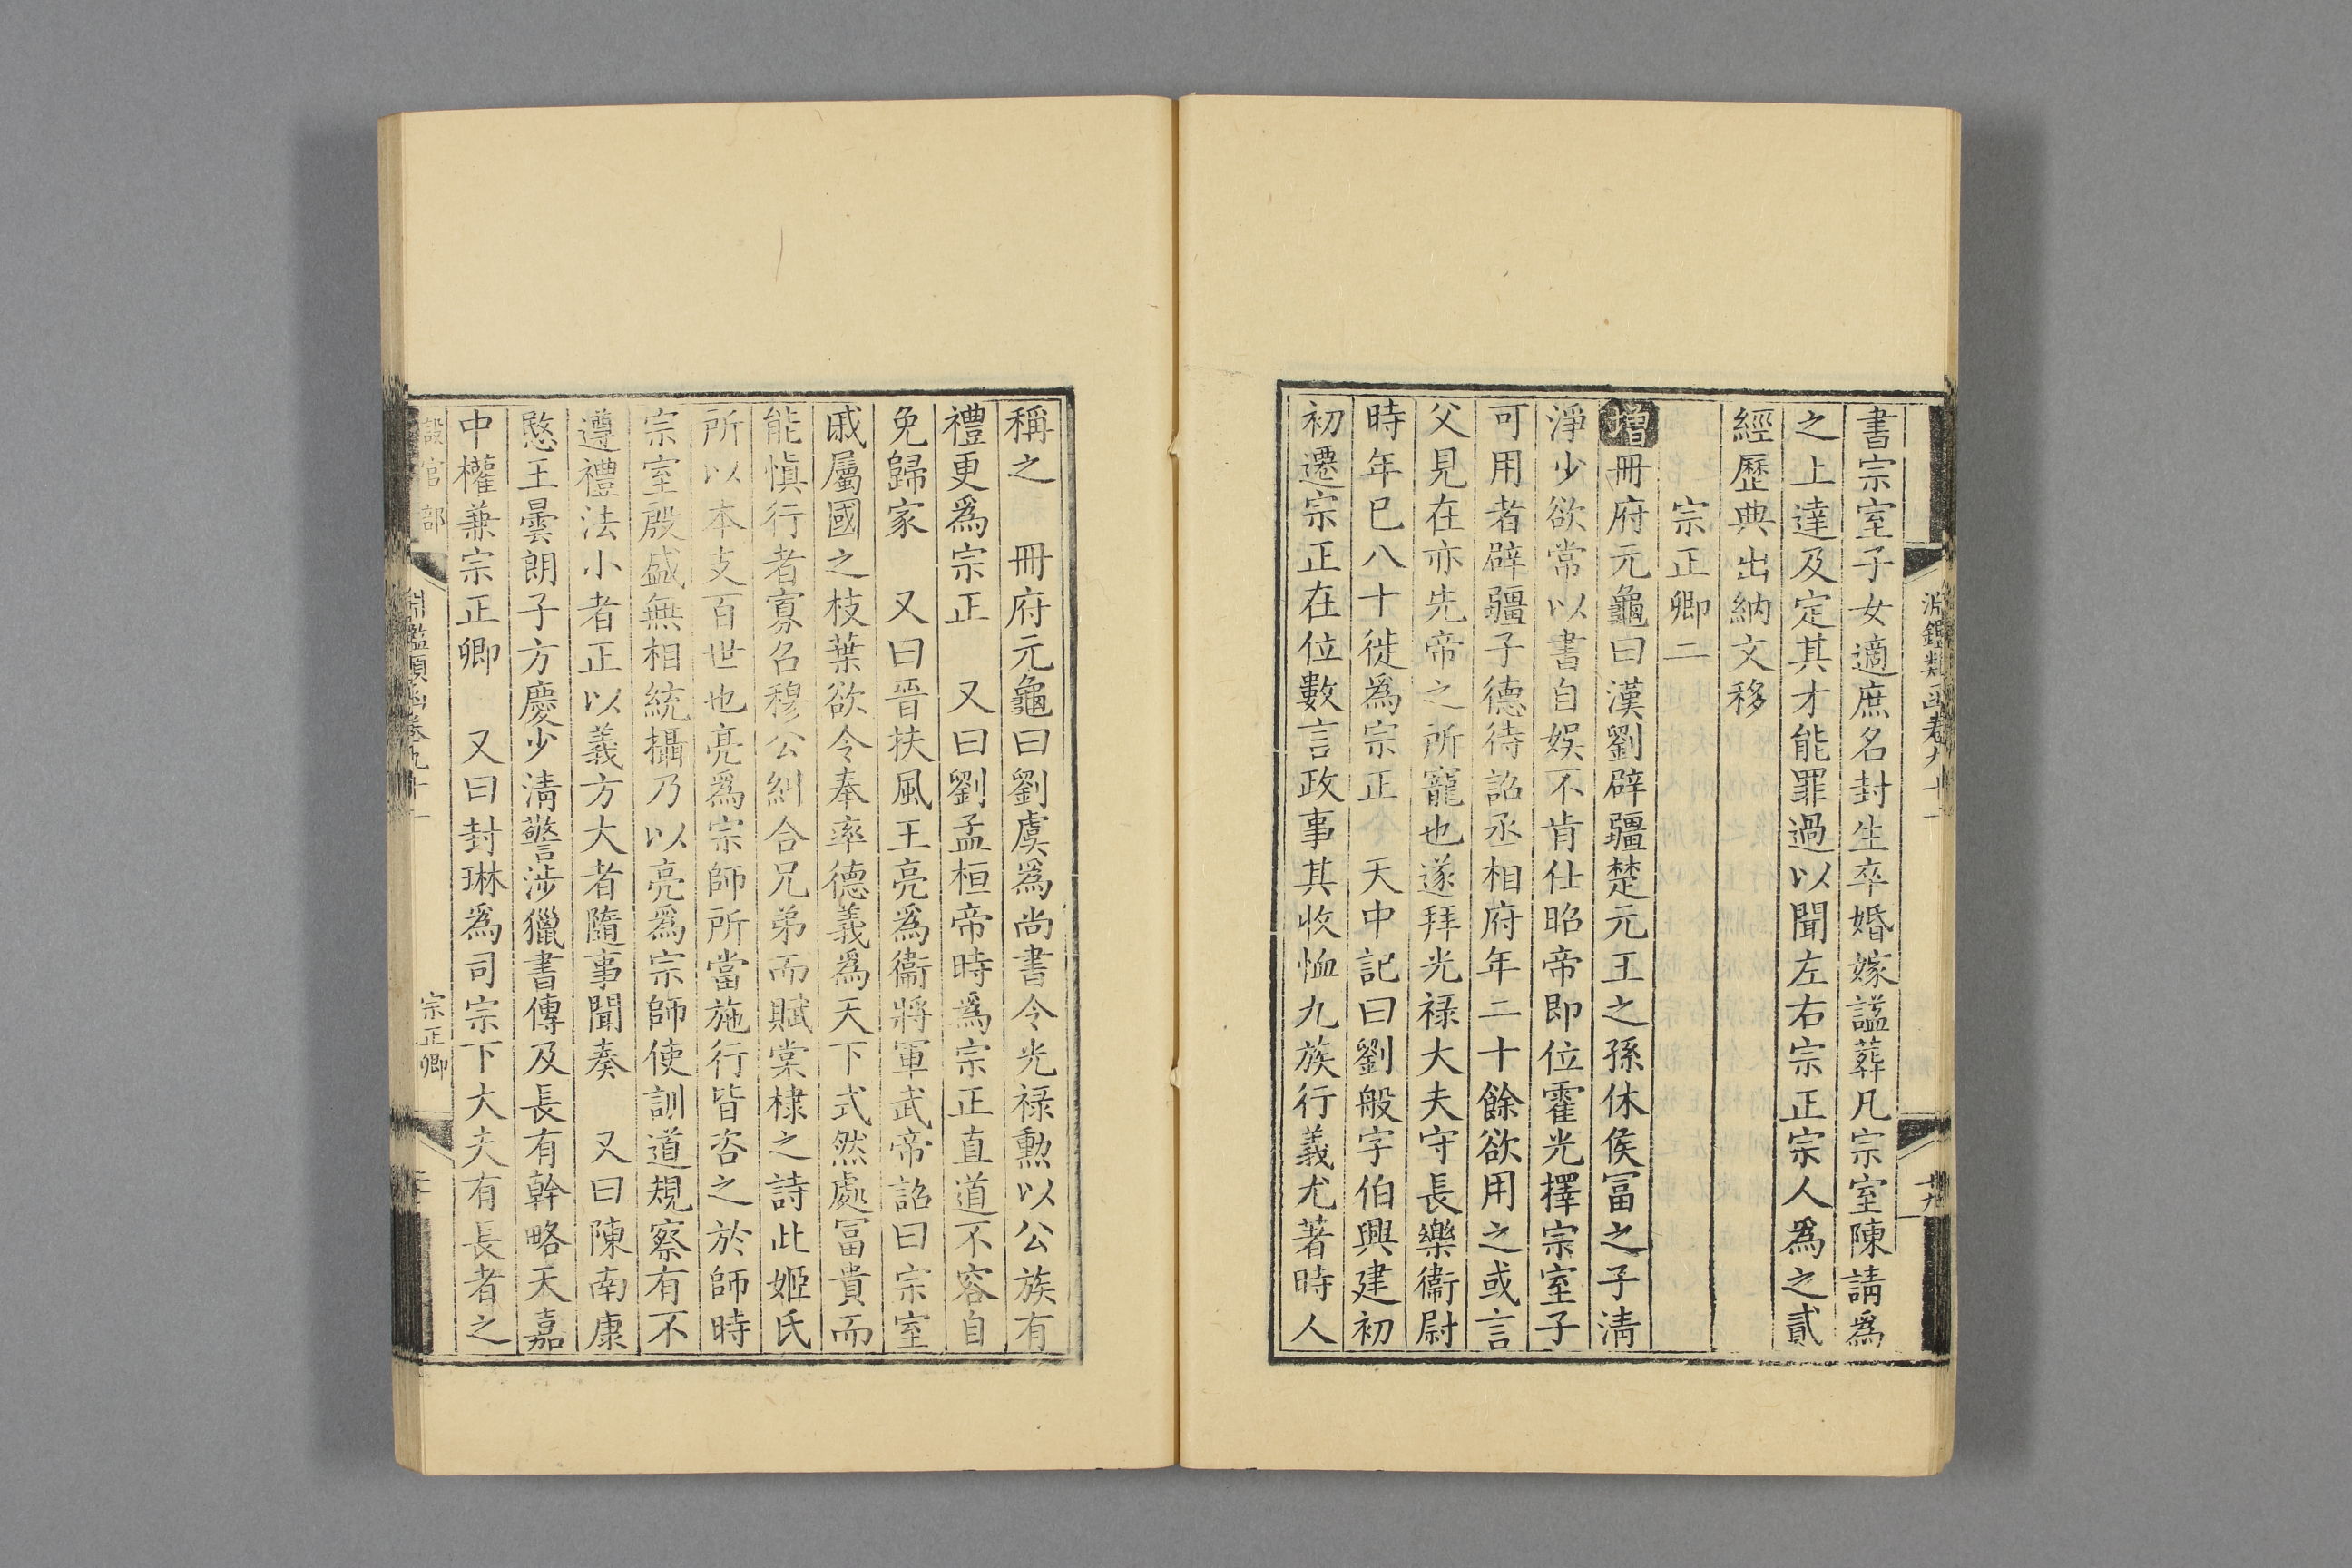 書宗室子女適庶名封生卒婚嫁謚葬凡宗室陳請爲
之上達及定其才能罪過以聞左右宗正宗人爲之貳
經歷典出納文移
宗正卿二
增冊府元龜曰漢劉辟疆楚元王之孫休侯冨之子淸
淨少欲常以書自娛不肯仕昭帝即位霍光擇宗室子
可用者辟疆子德待詔丞相府年二十餘欲用之或言
父見在亦先帝之所寵也遂拜光禄大夫守長樂衞尉
時年巳八十徙爲宗正　天中記曰劉般字伯興建初
初遷宗正在位數言政事其收恤九族行義尤著時人
稱之　冊府元龜曰劉虞爲尚書令光禄勲以公族有
禮更爲宗正　又曰劉孟桓帝時爲宗正直道不容自
免歸家　又曰晉扶風王亮爲衞將軍武帝詔曰宗室
戚屬國之枝葉欲令奉率德義爲天下式然處冨貴而
能愼行者寡召穆公糾合兄弟而賦棠棣之詩此姬氏
所以本支百世也亮爲宗師所當施行皆咨之於師時
宗室殷盛無相統攝乃以亮爲宗師使訓道規察有不
遵禮法小者正以義方大者隨事聞奏　又曰陳南康
愍王曇朗子方慶少淸警涉獵書傳及長有幹略天嘉
中權兼宗正卿　又曰封琳爲司宗下大夫有長者之
設官部
淵鑑類函卷九十一
宗正卿